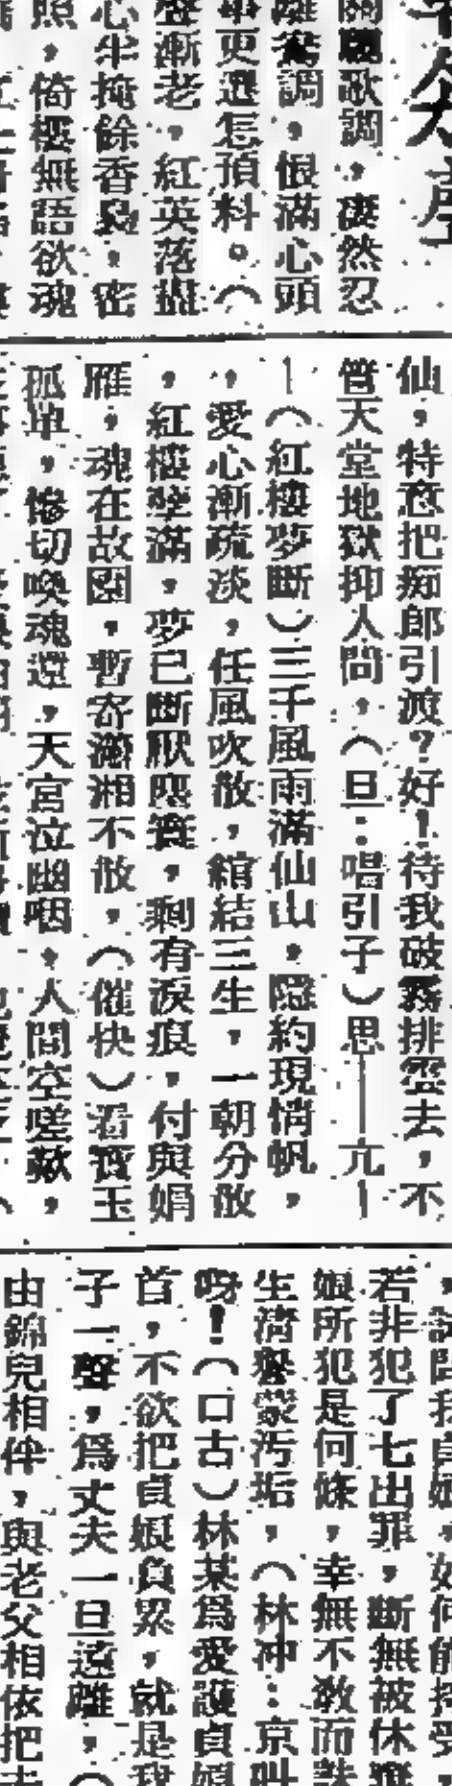 關
歌調，凄然忍
調，恨滿心頭
更還怎預料。（
聲漸老，紅英落
心半掩餘香，密
照，倚樓無語欲魂
仙，特意把痴郎引渡？好！待我破霧排雲去，不
管天堂地獄抑人間，（旦：唱引子）思——亢—
—（紅樓夢斷）三千風雨滿仙山，隱約現情帆，
，愛心漸疏淡，任風吹散，綰結三生，一朝分散
，紅樓孽滿，夢已斷厭塵寰，剩有淚痕，付與娟
雁，魂在故園，暫寄瀟湘不散，（催快）看寶玉
孤單，慘切喚魂還，天宮泣幽咽，人間空嗟歎，
若非犯了七出罪，斷無被休
娘所犯是何條，幸無不敎而誅
生清譽蒙污垢，（林冲：京叫
呀！（口古）林某爲愛護貞娘
首，不欲把貞娘負累，就是我
子一聲，爲丈夫一旦遠離，（
由錦兒相伴，與老父相依把